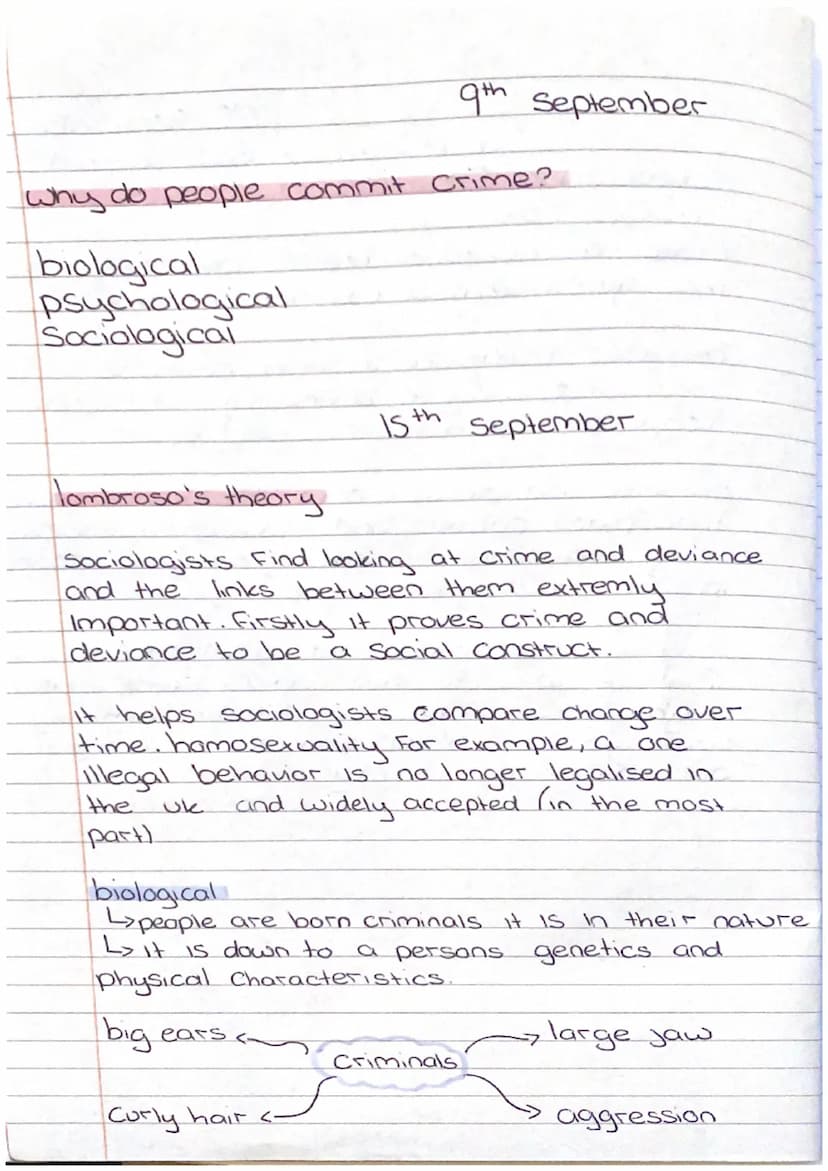 9th September
Why do people commit crime?
biological
psychological
Sociological
15th September
lombroso's theory
Sociologists find looking at crime and deviance
and the links between them extremly
important. firstly it proves crime and
deviance to be a social construct.
It helps sociologists compare change over
time. homosexuality for example, a one
illegal behavior is no longer legalised in
the uk and widely accepted (in the most
part)
biological
↳people are born criminals it is in their nature
↳it is down to a persons genetics and
physical characteristics.
big ears
large jaw
Criminals
Curly hair
aggression